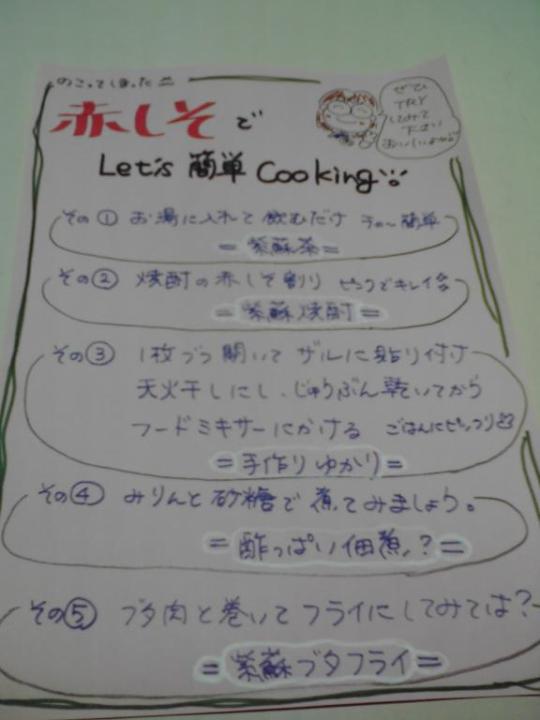 のこってしまった
赤しそで
Let's 簡単 Cooking
ぜひ
TRY
してみて
下さい
おいしいよ
その① お湯に入れて飲むだけ 簡単
=紫蘇茶=
その② 焼酎の赤しそ割り ピンクでキレイ
=紫蘇焼酎=
その③ 1枚づつ開いてザルに貼り付け
天火干しにし、じゅうぶん乾いてから
フードミキサーにかける ごはんにピッタリ
=手作りゆかり=
その④ みりんと砂糖で煮てみましょう。
=酢っぱい佃煮?=
その⑤ ブタ肉と巻いてフライにしてみては?
=紫蘇ブタフライ=